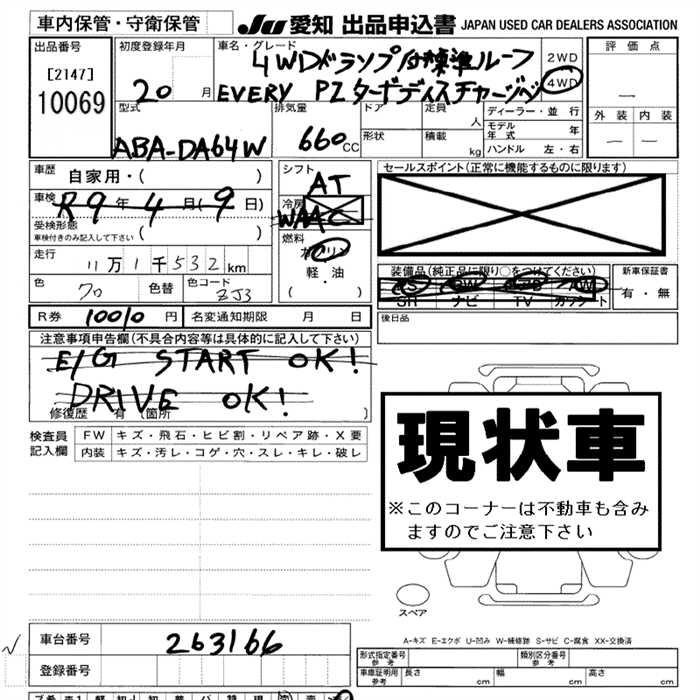 車内保管・守衛保管
JU 愛知 出品申込書 JAPAN USED CAR DEALERS ASSOCIATION
出品番号
[2147]
10069
初度登録年月
20 月
車名・グレード
4WDドランプ付標準ルーフ
EVERY PZターボディスチャージベ
2WD
4WD
評価点
外装 内装
型式
ABA-DA64W
排気量
660 CC
ドア
形状
定員 人
積載 kg
ディーラー・並行
モデル年式 年
ハンドル 左・右
車歴
自家用・( )
車検
R9年4月(9日)
受検形態
車検付きのみ記入して下さい ( )
走行
11万1千532km
色 クロ 色替 色コード ZJ3
シフト
AT
冷房
WAAC
燃料
ガソリン
軽・油
( )
セールスポイント(正常に機能するものに限ります)
装備品(純正品に限り○をつけてください)
PS PW AW
SR ナビ TV カワシート
新車保証書
有・無
後日品
R券 10010円 名変通知期限 月 日
注意事項申告欄(不具合内容等は具体的に記入して下さい)
E/G START OK!
DRIVE OK!
修復歴 有 (箇所 )
検査員記入欄
FW キズ・飛石・ヒビ割・リペア跡・X要
内装 キズ・汚レ・コゲ・穴・スレ・キレ・破レ
現状車
※このコーナーは不動車も含み
ますのでご注意下さい
スペア
A-キズ E-エクボ U-凹み W-補修跡 S-サビ C-腐食 XX-交換済
車台番号 263166
登録番号
形式指定番号 参考
類別区分番号 参考
車庫証明用 参考 長さ cm 幅 cm 高さ cm